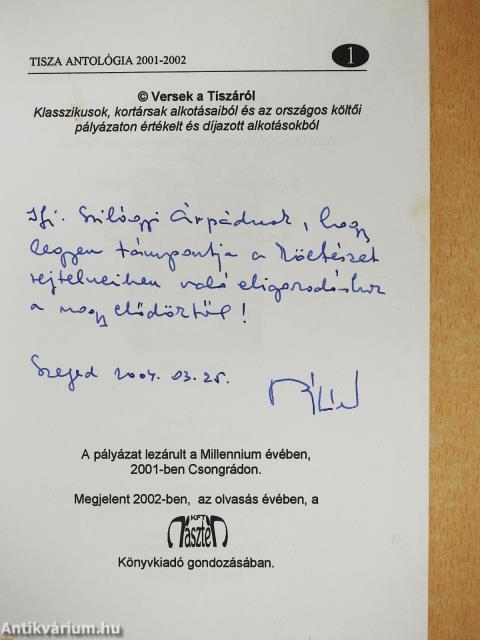 TISZA ANTOLÓGIA 2001-2002
1
© Versek a Tiszáról
Klasszikusok, kortársak alkotásaiból és az országos költői
pályázaton értékelt és díjazott alkotásokból
Ifj. Szilágyi Árpádnak, hogy
legyen támpontja a Költészet
rejtelmeiben való eligazodáshoz
a nagy elődöktől!
Szeged 2004. 03. 25.
A pályázat lezárult a Millennium évében,
2001-ben Csongrádon.
Megjelent 2002-ben, az olvasás évében, a
KFT
Könyvkiadó gondozásában.
Antikvárium.hu